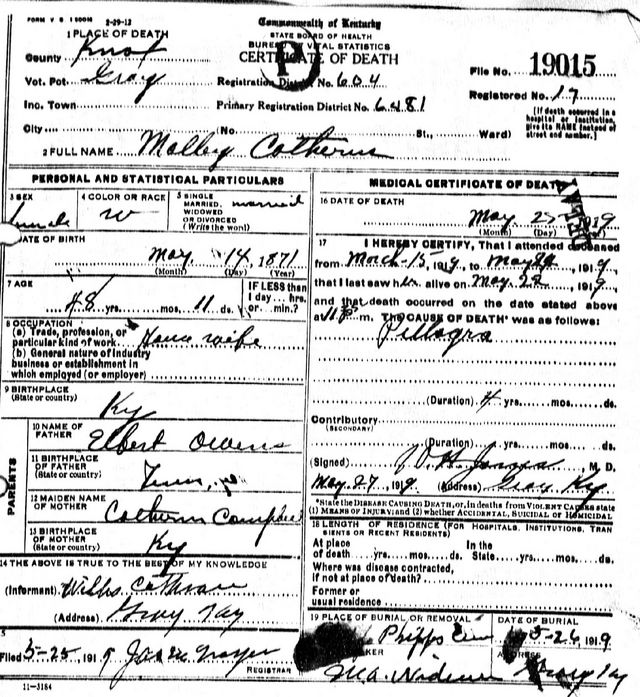 FORM V S 1 500M 2-29-12
Commonwealth of Kentucky
STATE BOARD OF HEALTH
BUREAU OF VITAL STATISTICS
CERTIFICATE OF DEATH
1 PLACE OF DEATH
County Knox
Vot. Pct. Gray
Registration District No. 604
File No. 19015
Inc. Town
Primary Registration District No. 6481
Registered No. 17
City (No St., Ward)
[If death occurred in a hospital or institution, give its NAME instead of street and number.]
2 FULL NAME Molley Cothern
PERSONAL AND STATISTICAL PARTICULARS
3 SEX female
4 COLOR OR RACE W
5 SINGLE MARRIED, WIDOWED OR DIVORCED (Write the word) married
DATE OF BIRTH
May 14, 1871
(Month) (Day) (Year)
7 AGE
48 yrs. mos. 11 ds.
IF LESS than 1 day... hrs. or... min.?
8 OCCUPATION
(a) Trade, profession, or particular kind of work House wife
(b) General nature of industry business or establishment in which employed (or employer)
9 BIRTHPLACE
(State or country) Ky
PARENTS
10 NAME OF FATHER Elbert Owens
11 BIRTHPLACE OF FATHER (State or country) Tenn
12 MAIDEN NAME OF MOTHER Cothern Campbell
13 BIRTHPLACE OF MOTHER (State or country) Ky
14 THE ABOVE IS TRUE TO THE BEST OF MY KNOWLEDGE
(Informant) Cothran
(Address) Gray
Filed 5-25, 1919
REGISTRAR
11-3184
MEDICAL CERTIFICATE OF DEATH
16 DATE OF DEATH
May 1919
(Month) (Day) (Year)
17 I HEREBY CERTIFY, That I attended deceased
from March 15, 1919, to May, 1919,
that I last saw alive on May 22, 1919,
and that death occurred on the date stated above
at 11 P m. The CAUSE OF DEATH* was as follows:
Pillagra
(Duration) 4 yrs. mos. ds.
Contributory
(SECONDARY)
(Duration) yrs. mos. ds.
(Signed) M. D.
May 27, 1919 (Address) Gray Ky
*State the DISEASE CAUSING DEATH, or, in deaths from VIOLENT CAUSES state (1) MEANS OF INJURY; and (2) whether ACCIDENTAL, SUICIDAL or HOMICIDAL
18 LENGTH OF RESIDENCE (FOR HOSPITALS, INSTITUTIONS, TRANSIENTS OR RECENT RESIDENTS)
At place of death yrs. mos. ds. In the State yrs. mos. ds.
Where was disease contracted,
if not at place of death?
Former or
usual residence
19 PLACE OF BURIAL OR REMOVAL
Phipps Cem
DATE OF BURIAL
5-26 1919